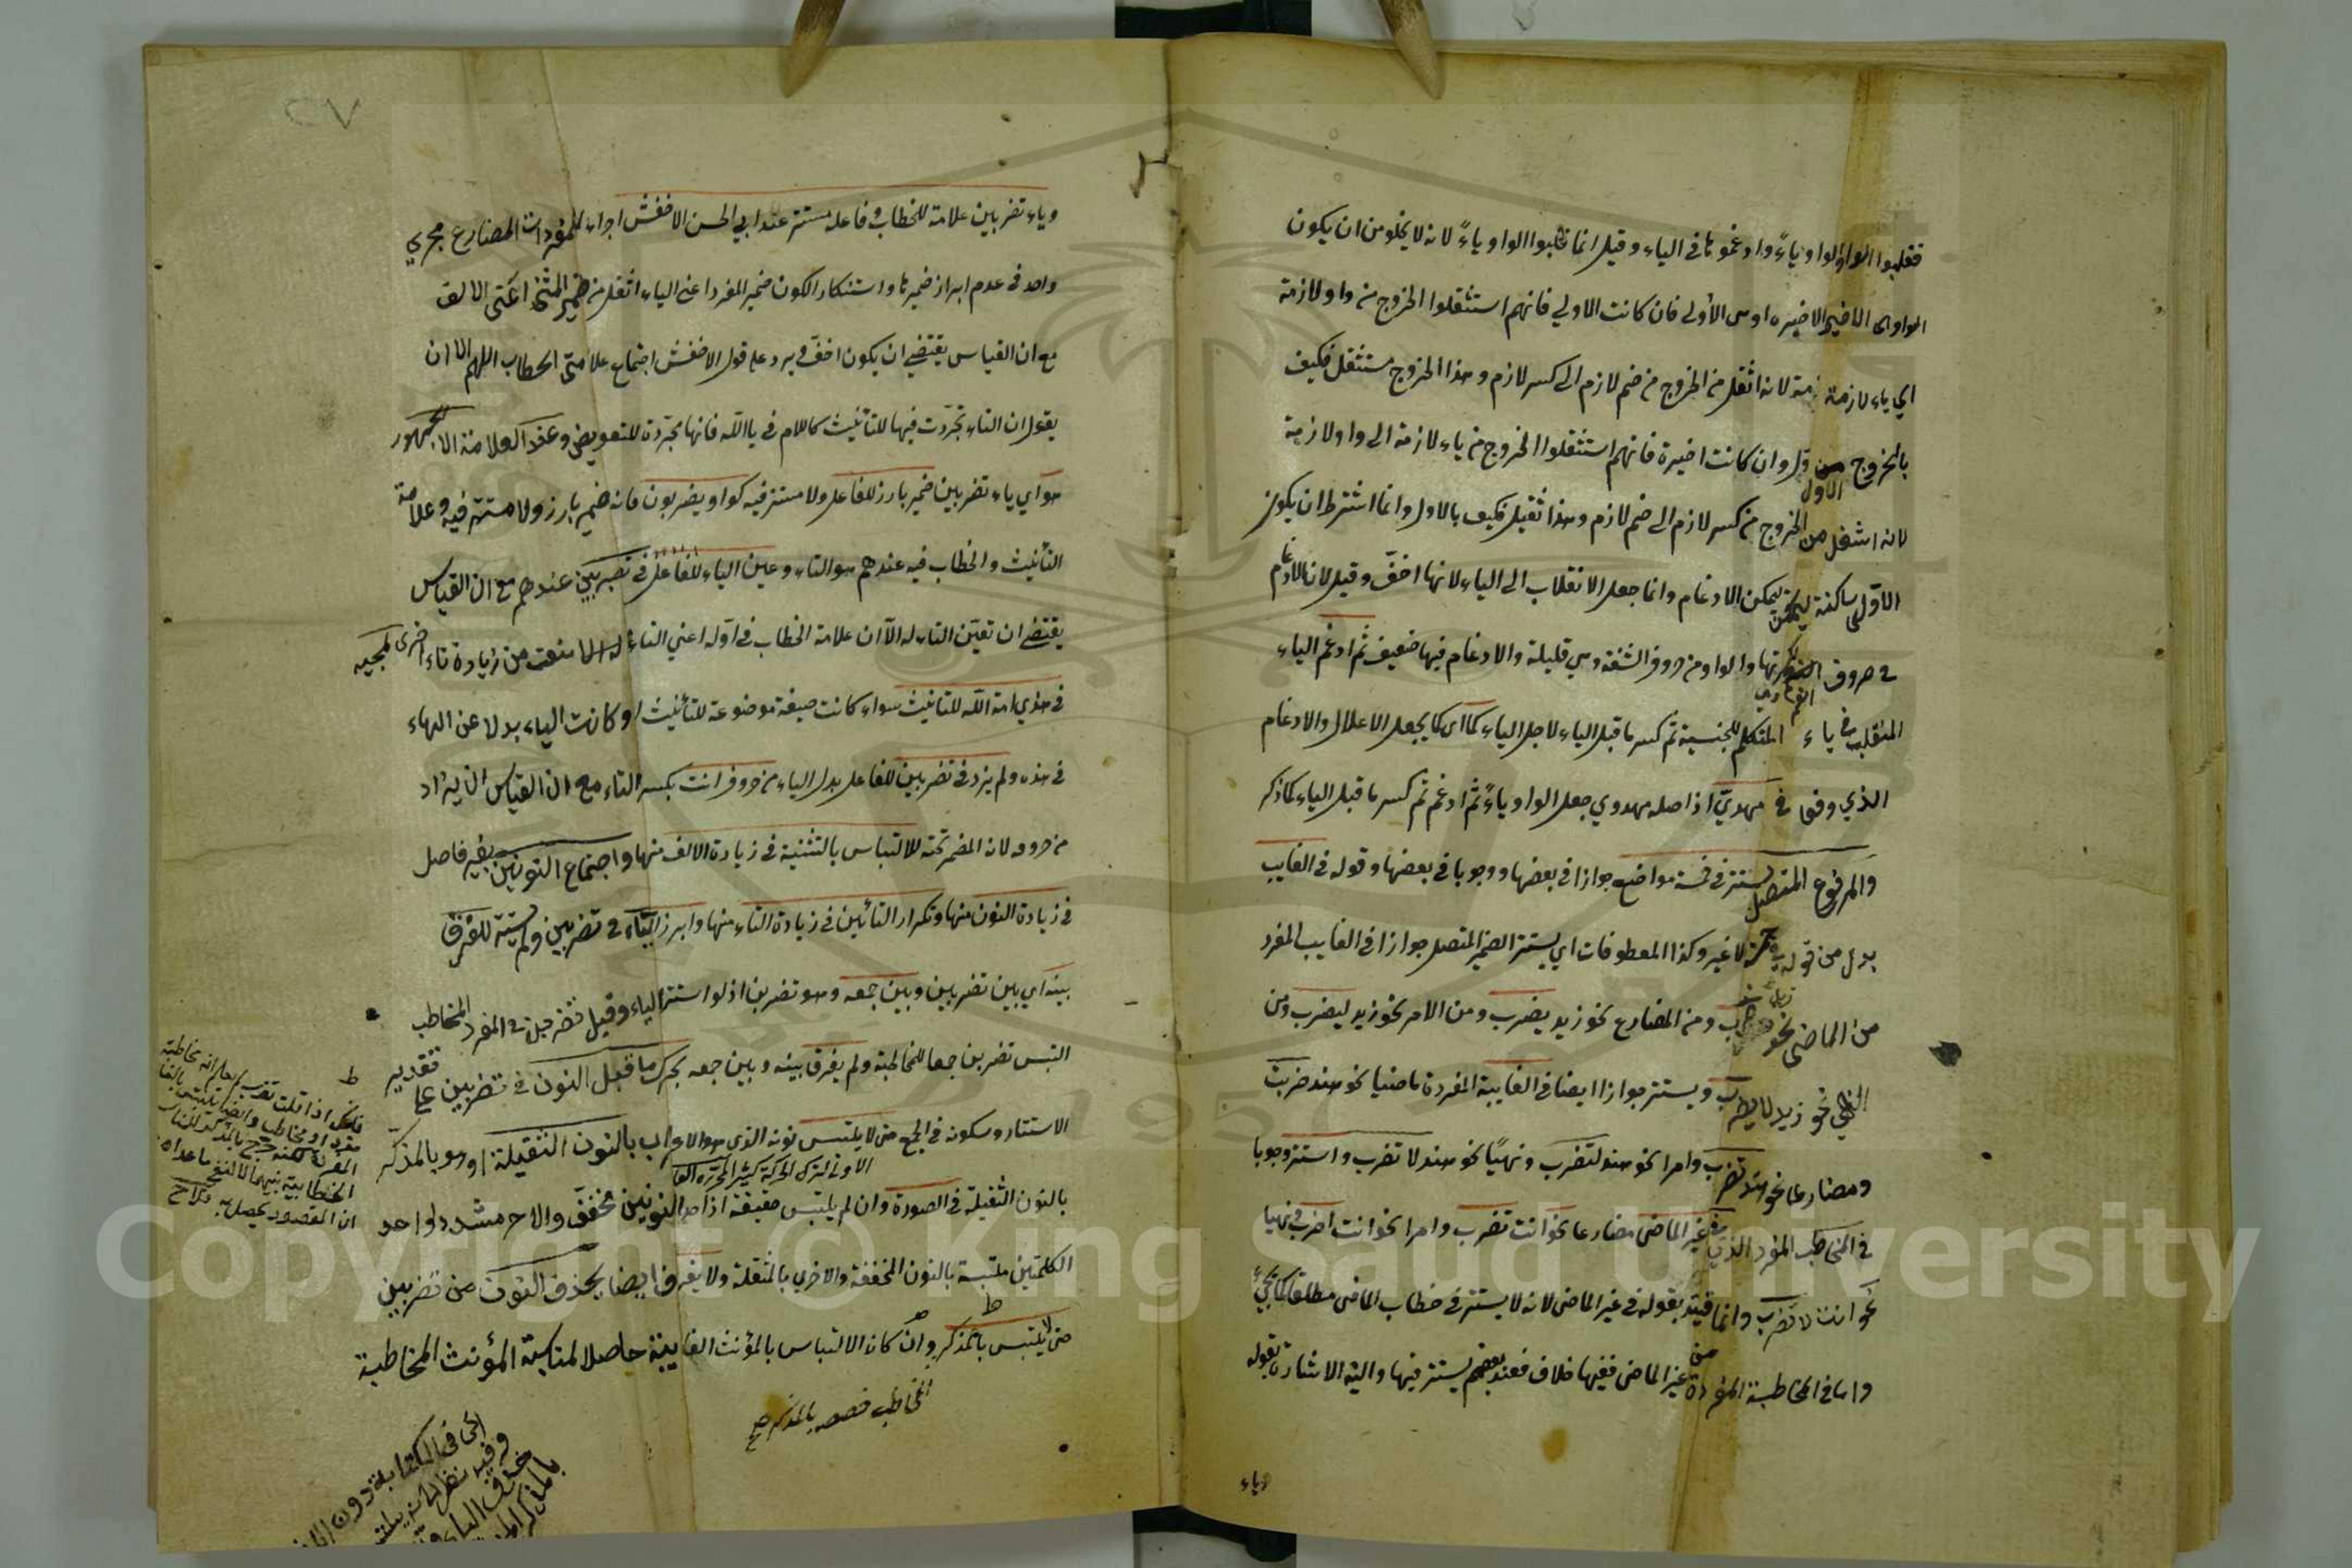 فقلبوا الواو ياءً وادغموها في الياء وقيل انما قلبوا الواو ياءً لانه لا يخلو من ان يكون
الواو هي الاخيره او هي الأولى فان كانت الاولي فانهم استثقلوا الخروج من واو لازمة
الي ياء لازمة لانه اثقل من الخروج من ضم لازم الى كسر لازم وهذا الخروج مستثقل فكيف
بالخروج الاول وان كانت اخيرة فانهم استثقلوا الخروج من ياء لازمة الى واو لازمة
لانه اثقل من الخروج من كسر لازم الى ضم لازم وهذا ثقيل فكيف بالاول وانما اشترط ان يكون
الاولى ساكنة ليمكن الادغام وانما جعل الانقلاب الى الياء لانها اخفّ وقيل لان الادغام
في حروف الفم اكثر والواو من حروف الشفة وهي قليلة والادغام فيها ضعيف ثم ادغم الياء
المنقلب في ياء المتكلم للجنسية ثم كسر ما قبل الياء لاجل الياء كما اي كما يجعل الاعلال والادغام
الذي وقعا في مهديّ اذ اصله مهدوي جعل الواو ياءً ثم ادغم ثم كسر ما قبل الياء كما ذكر
والمرفوع المتصل يستتر في خمسة مواضع جوازا في بعضها ووجوبا في بعضها وقوله في الغايب
بدل من قوله في خمسة لا غير وكذا المعطوفات اي يستتر الضمير المتصل جوازا في الغايب المفرد
من الماضى نحو زيد ضرب ومن المضارع نحو زيد يضرب ومن الامر نحو زيد ليضرب ومن
النهي نحو زيد لا يضرب ويستتر جوازا ايضا في الغايبة المفردة ماضيا نحو هند ضربت
ومضارعا نحو هند تضرب وامرا نحو هند لتضرب ونهيًا نحو هند لا تضرب واستتر وجوبا
في المخاطب المفرد الذي في غير الماضى مضارعا نحو انت تضرب وامرا نحو انت اضرب ونهيا
نحو انت لا تضرب وانما قيّد بقوله في غير الماضى لانه لا يستتر في خطاب الماضى مطلقا كما يجيءُ
واما في المخاطبة المفردة من غير الماضى ففيها خلاف فعند بعضهم يستتر فيها واليه الاشارة بقوله
وياء
٢٧
وياء تضربين علامة للخطاب وفاعله مستتر عند ابي الحسن الاخفش اجراء للمفردات المضارع مجري
واحد في عدم ابراز ضميرها واستنكار الكون ضمير المفرد اعنى الياء اثقل من ضمير المثنى اعنى الالف
مع ان القياس يقتضي ان يكون اخفّ ويرد على قول الاخفش اجتماع علامتى الخطاب اللهم الا ان
يقول ان التاء تجرّدت فيها للتأنيث كاللام في يا الله فانها مجرّدة للتعويض وعند العلامة الجمهور
هو اي ياء تضربين ضمير بارز للفاعل ولا مستتر فيه كواو يضربون فانه ضمير بارز ولا مستتر فيه وعلامة
التأنيث والخطاب فيه عندهم هو التاء وعين الياء للفاعل في تضربين عندهم مع ان القياس
يقتضي ان تعيّن التاء له الّا ان علامة الخطاب في اوّله اعني التاء منعت من زيادة تاء اخرى لمجيه
في هذي امة الله للتانيث سواء كانت صيغة موضوعة للتأنيث او كانت الياء بدلا عن الهاء
في هذه ولم يزد في تضربين للفاعل بدل الياء من حروف انت بكسر التاء مع ان القياس ان يزاد
من حروفه لانه المضمر تحته للالتباس بالتثنية في زيادة الالف منها واجتماع النونين بغير فاصل
في زيادة النون منها وتكرار التائين في زيادة التاء منها وابرز الياء في تضربين ولم يستتر للفرق
بينه اي بين تضربين وبين جمعه وهو تضربن اذ لو استتر الياء وقيل تضربن في المفرد المخاطب
التبس تضربن جمعا للمخاطبة ولم يفرق بينه وبين جمعه بحركة ما قبل النون في تضربين على تقدير
الاستتار وسكونه في الجمع حتى لا يلتبس نونه الذى هو الاعراب بالنون الثقيلة او هو بالمذكر
بالنون الثقيلة في الصورة وان لم يلتبس حقيقة اذ احد النونين مخفف والاخر مشدد او احد
الكلمتين ملتبسة بالنون المخففة والاخري بالمثقلة ولا يفرق ايضا بحذف النون من تضربين
حتى لا يلتبس بالمذكر وان كان الالتباس بالمؤنث الغايبة حاصلا لمناسبة المؤنث المخاطبة
المخاطب فخصصه بالمذكر صح
ان المقصود يحصل به